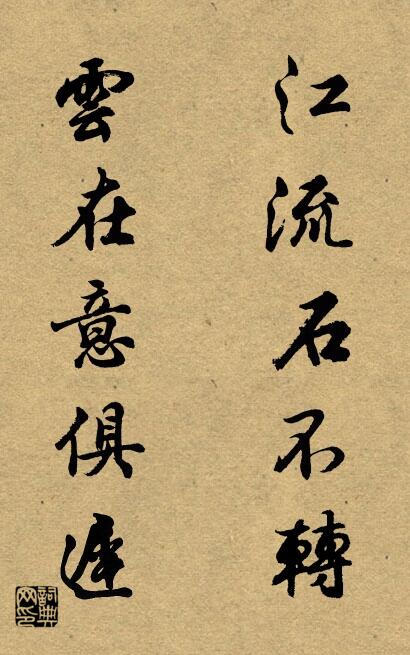 江流石不轉
雲在意俱遲
詞典網印